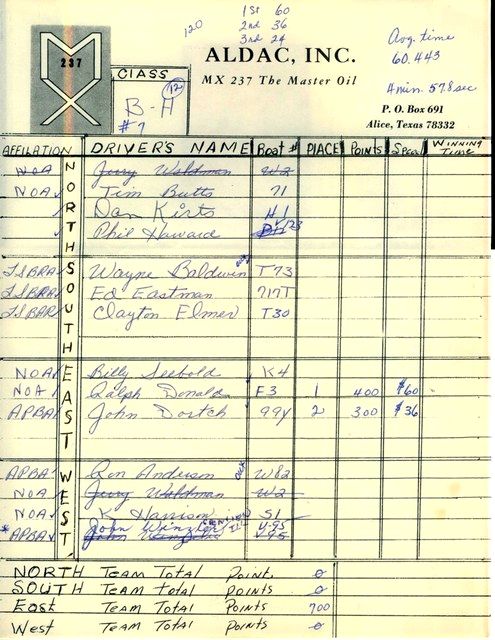 1st 60
120 2nd 36
3rd 24
ALDAC, INC.
Avg. time
60.443
237
CLASS
MX 237 The Master Oil
4 min. 57.8 sec
12
B-H
#7
P. O. Box 691
Alice, Texas 78332
AFFILATION DRIVER'S NAME Boat # PLACE POINTS Speed WINNING TIME
NORTH
NOA Jerry Waldman W2
NOA Tim Butts 71
Dan Kirts H1
Phil Howard 123
SOUTH
TSBRA Wayne Baldwin T73
TSBRA Ed Eastman 717T
TSBAR Clayton Elmer T30
EAST
NOA Billy Seebold K4
NOA Ralph Donald F3 1 400 $60
APBA John Dortch 99Y 2 300 $36
WEST
APBA Ron Anderson W82
NOA Jerry Waldman W2
NOA K Harrison S1
* APBA John V-95
V95
NORTH Team Total Point. 0
SOUTH Team total Points 0
East Team Total Points 700
West Team Total Points 0